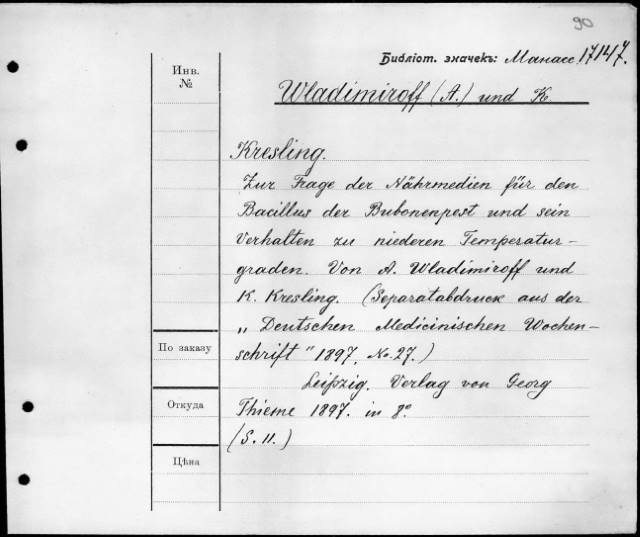 90
Библіот. значекъ: Манасс. 17147.
Инв.
№
Wladimiroff (A.) und K.
Kresling.
Zur Frage der Nährmedien für den
Bacillus der Bubonenpest und sein
Verhalten zu niederen Temperatur-
graden. Von A. Wladimiroff und
K. Kresling. (Separatabdruck aus der
„Deutschen Medicinischen Wochen-
schrift" 1897, No. 27.)
По заказу
Leipzig. Verlag von Georg
Откуда
Thieme 1897. in 8°
(S. 11.)
Цѣна